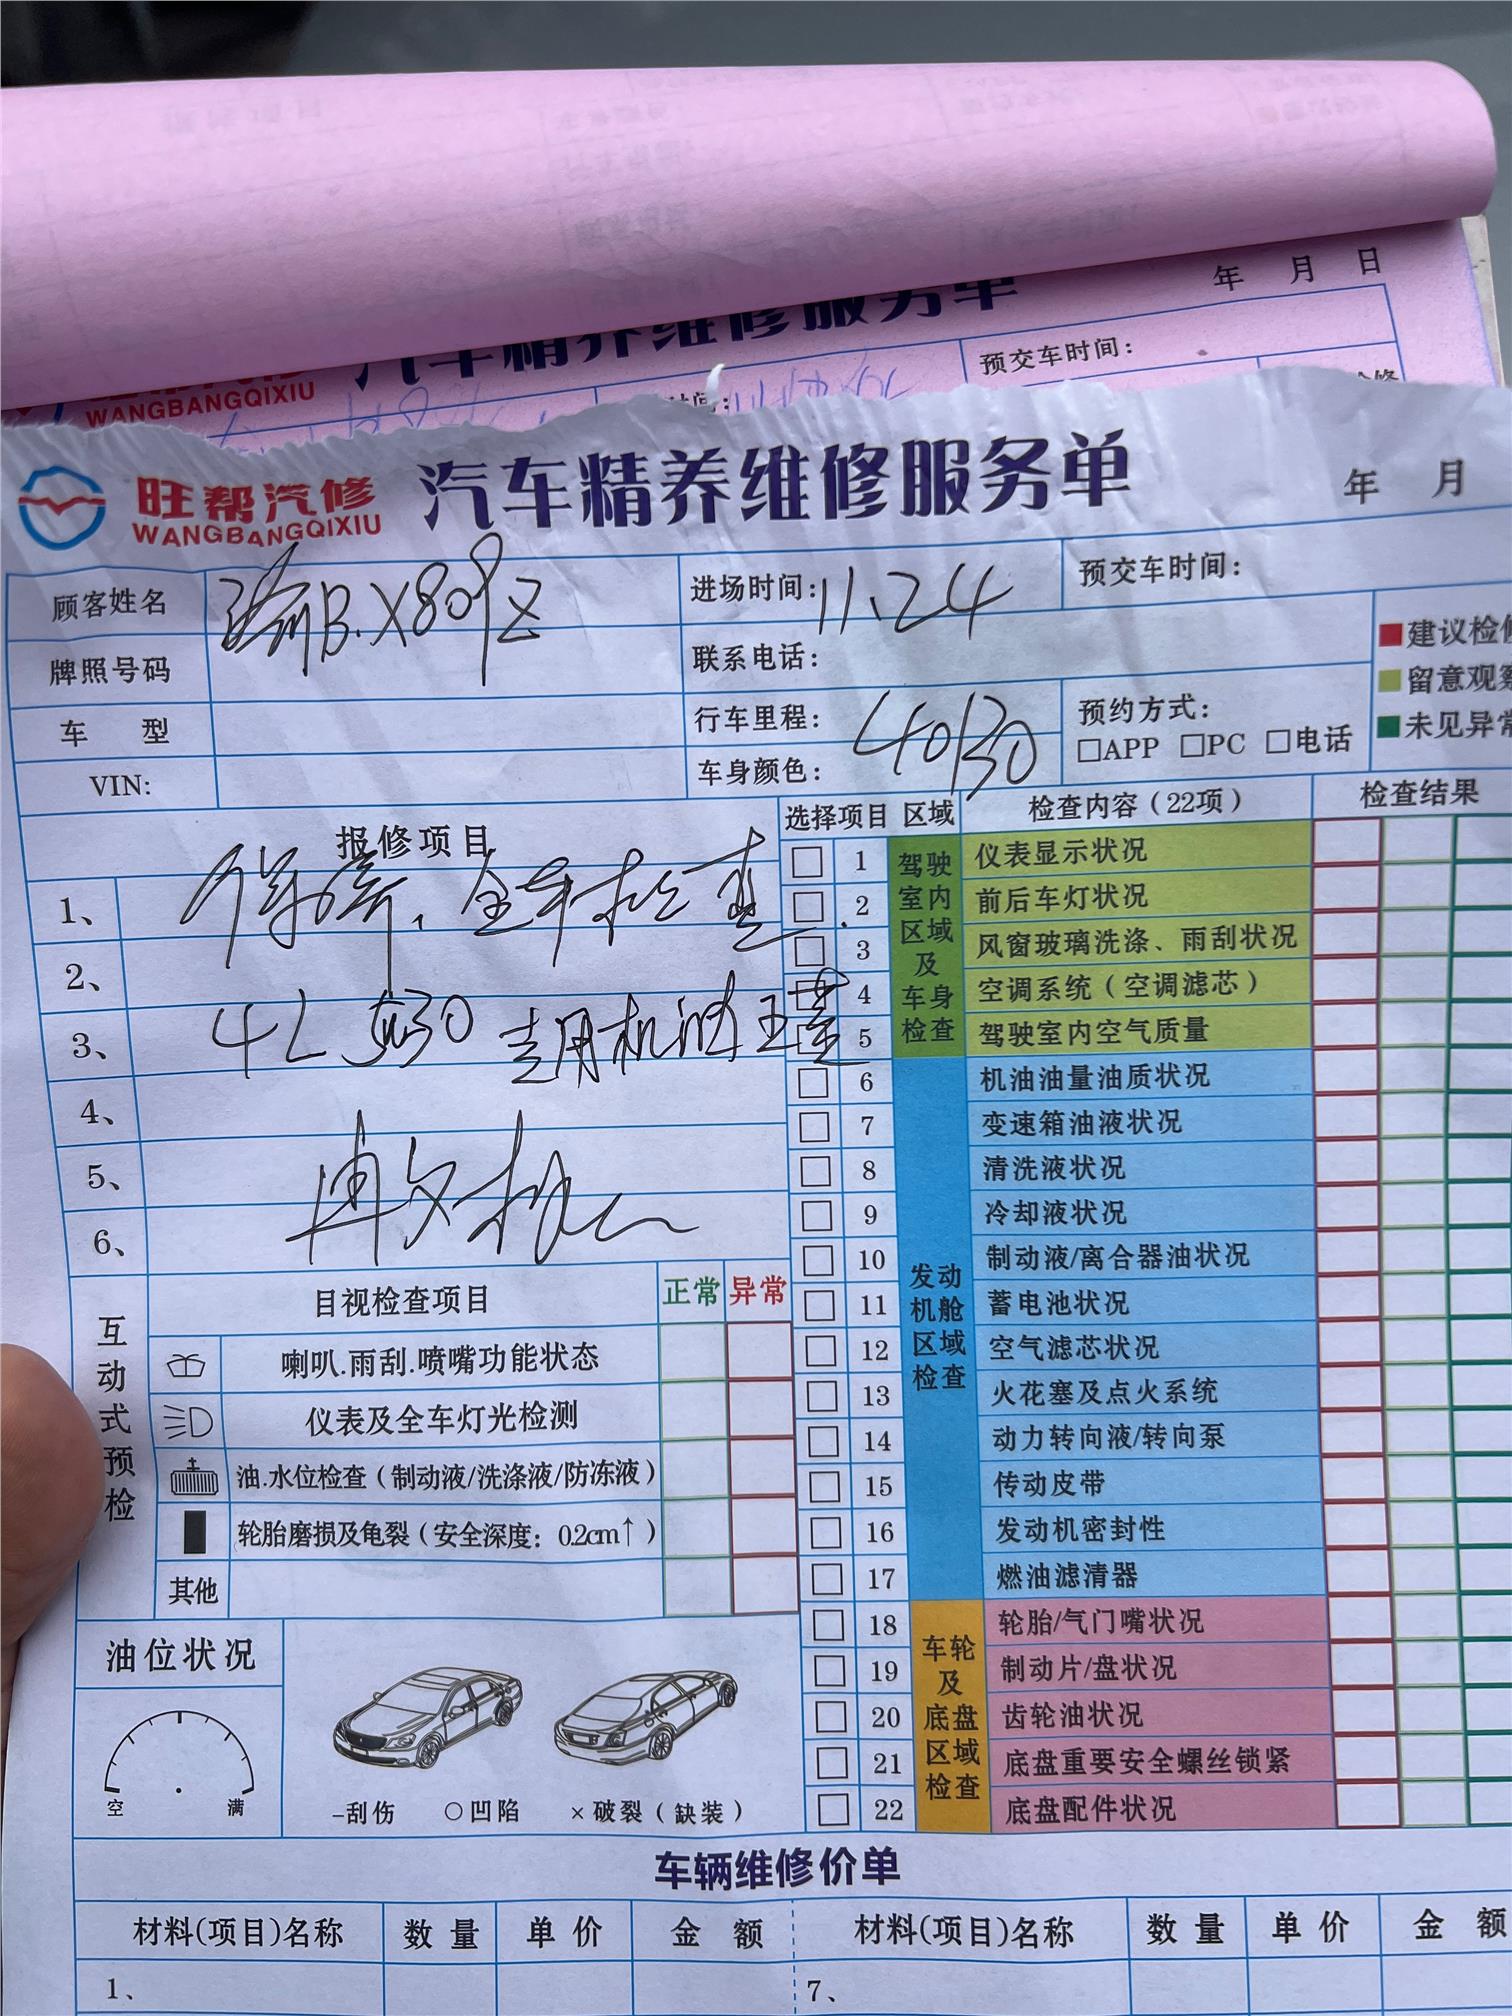 年 月 日
汽车精养维修服务单
WANGBANGQIXIU
预交车时间:
旺帮汽修
WANGBANGQIXIU
汽车精养维修服务单
年 月
顾客姓名
渝B.X809Z
进场时间: 11.24
预交车时间:
牌照号码
联系电话:
车 型
行车里程: 40130
预约方式:
□APP □PC □电话
VIN:
车身颜色:
建议检修
留意观察
未见异常
报修项目
1、 保养、全车检查
2、
3、 4L 5w30 专用机油
4、
5、
6、
互动式预检
目视检查项目 正常 异常
喇叭.雨刮.喷嘴功能状态
仪表及全车灯光检测
油.水位检查(制动液/洗涤液/防冻液)
轮胎磨损及龟裂(安全深度: 0.2cm↑)
其他
油位状况
空 满
-刮伤 ○凹陷 ×破裂(缺装)
选择项目 区域 检查内容(22项) 检查结果
驾驶室内区域及车身检查
1 仪表显示状况
2 前后车灯状况
3 风窗玻璃洗涤、雨刮状况
4 空调系统(空调滤芯)
5 驾驶室内空气质量
发动机舱区域检查
6 机油油量油质状况
7 变速箱油液状况
8 清洗液状况
9 冷却液状况
10 制动液/离合器油状况
11 蓄电池状况
12 空气滤芯状况
13 火花塞及点火系统
14 动力转向液/转向泵
15 传动皮带
16 发动机密封性
17 燃油滤清器
车轮及底盘区域检查
18 轮胎/气门嘴状况
19 制动片/盘状况
20 齿轮油状况
21 底盘重要安全螺丝锁紧
22 底盘配件状况
车辆维修价单
材料(项目)名称 数量 单价 金额 材料(项目)名称 数量 单价 金额
1、 7、